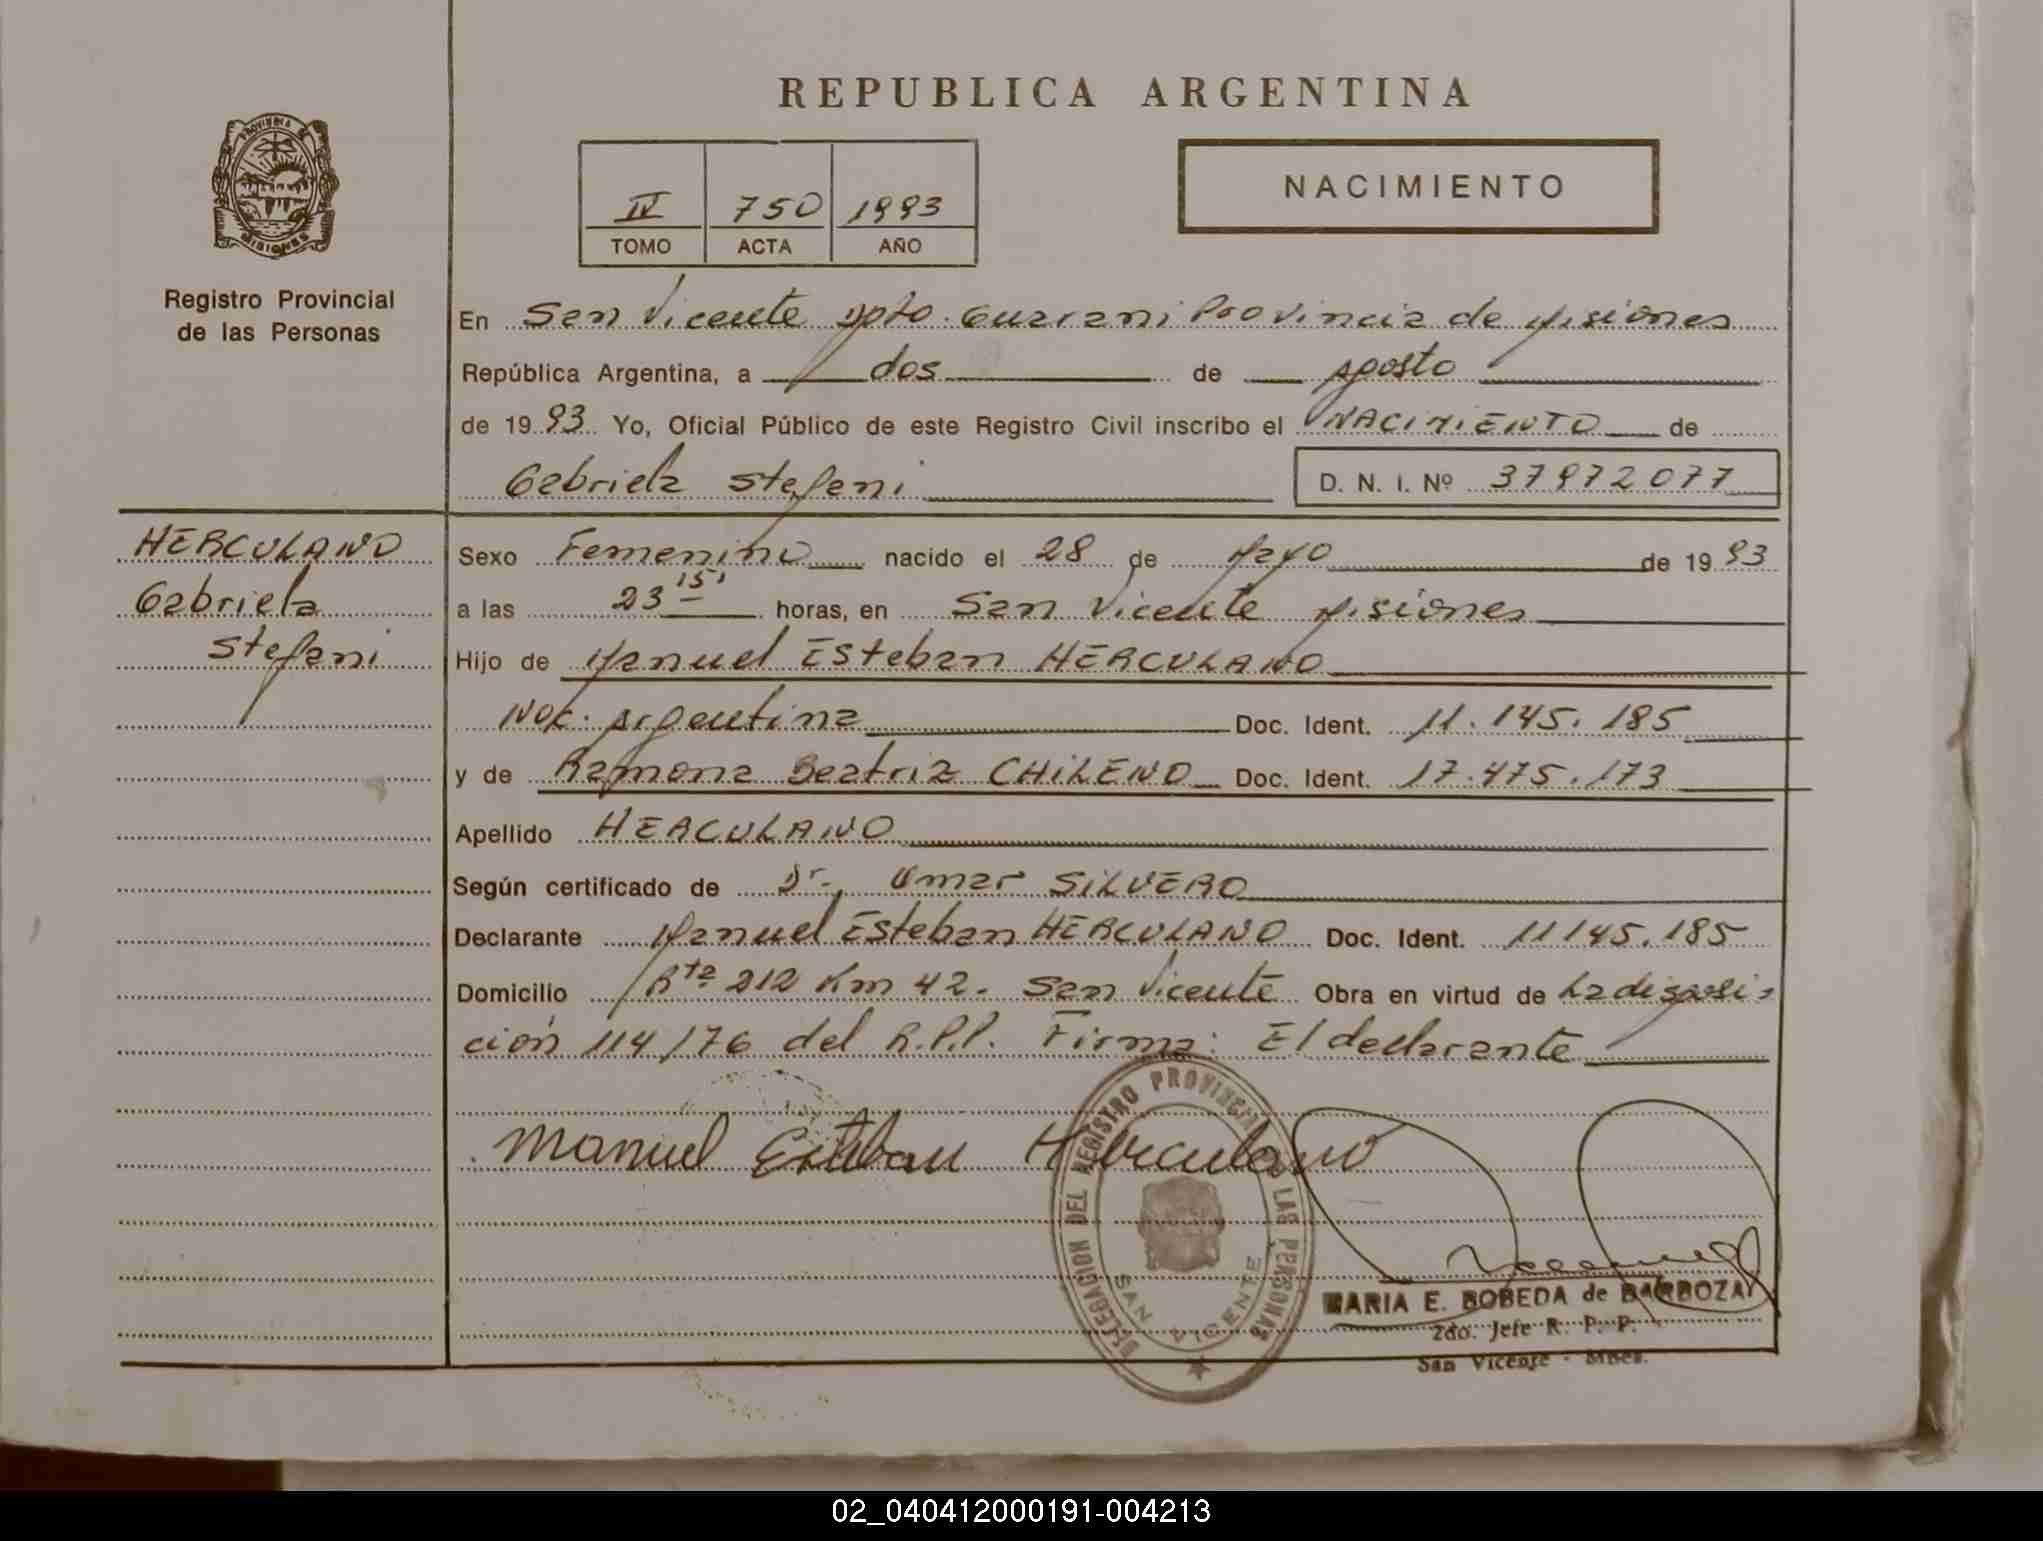 REPUBLICA ARGENTINA
PROVINCIA DE
MISIONES
Registro Provincial
de las Personas
IV 750 1993
TOMO ACTA AÑO
NACIMIENTO
En San Vicente Dpto. Guarani Provincia de Misiones
República Argentina, a dos de Agosto
de 1993 Yo, Oficial Público de este Registro Civil inscribo el NACIMIENTO de
Gabriela Stefani
D. N. I. Nº 37972077
HERCULANO
Gabriela
Stefani
Sexo Femenino nacido el 28 de Mayo de 1993
a las 23 15' horas, en San Vicente Misiones
Hijo de Manuel Esteban HERCULANO
Nac. Argentina Doc. Ident. 11.145.185
y de Ramona Beatriz CHILENO Doc. Ident. 17.475.173
Apellido HERCULANO
Según certificado de Dr. Omar SILVERO
Declarante Manuel Esteban HERCULANO Doc. Ident. 11145.185
Domicilio Rta 212 Km 42. San Vicente Obra en virtud de La disposi-
ción 114/76 del R.P.P. Firma: El declarante
Manuel Esteban Herculano
DELEGACION DEL REGISTRO PROVINCIAL LAS PERSONAS
SAN VICENTE
MARIA E. BOBEDA de BARBOZA
2do. Jefe R. P. P.
San Vicente - Mnes.
02_040412000191-004213